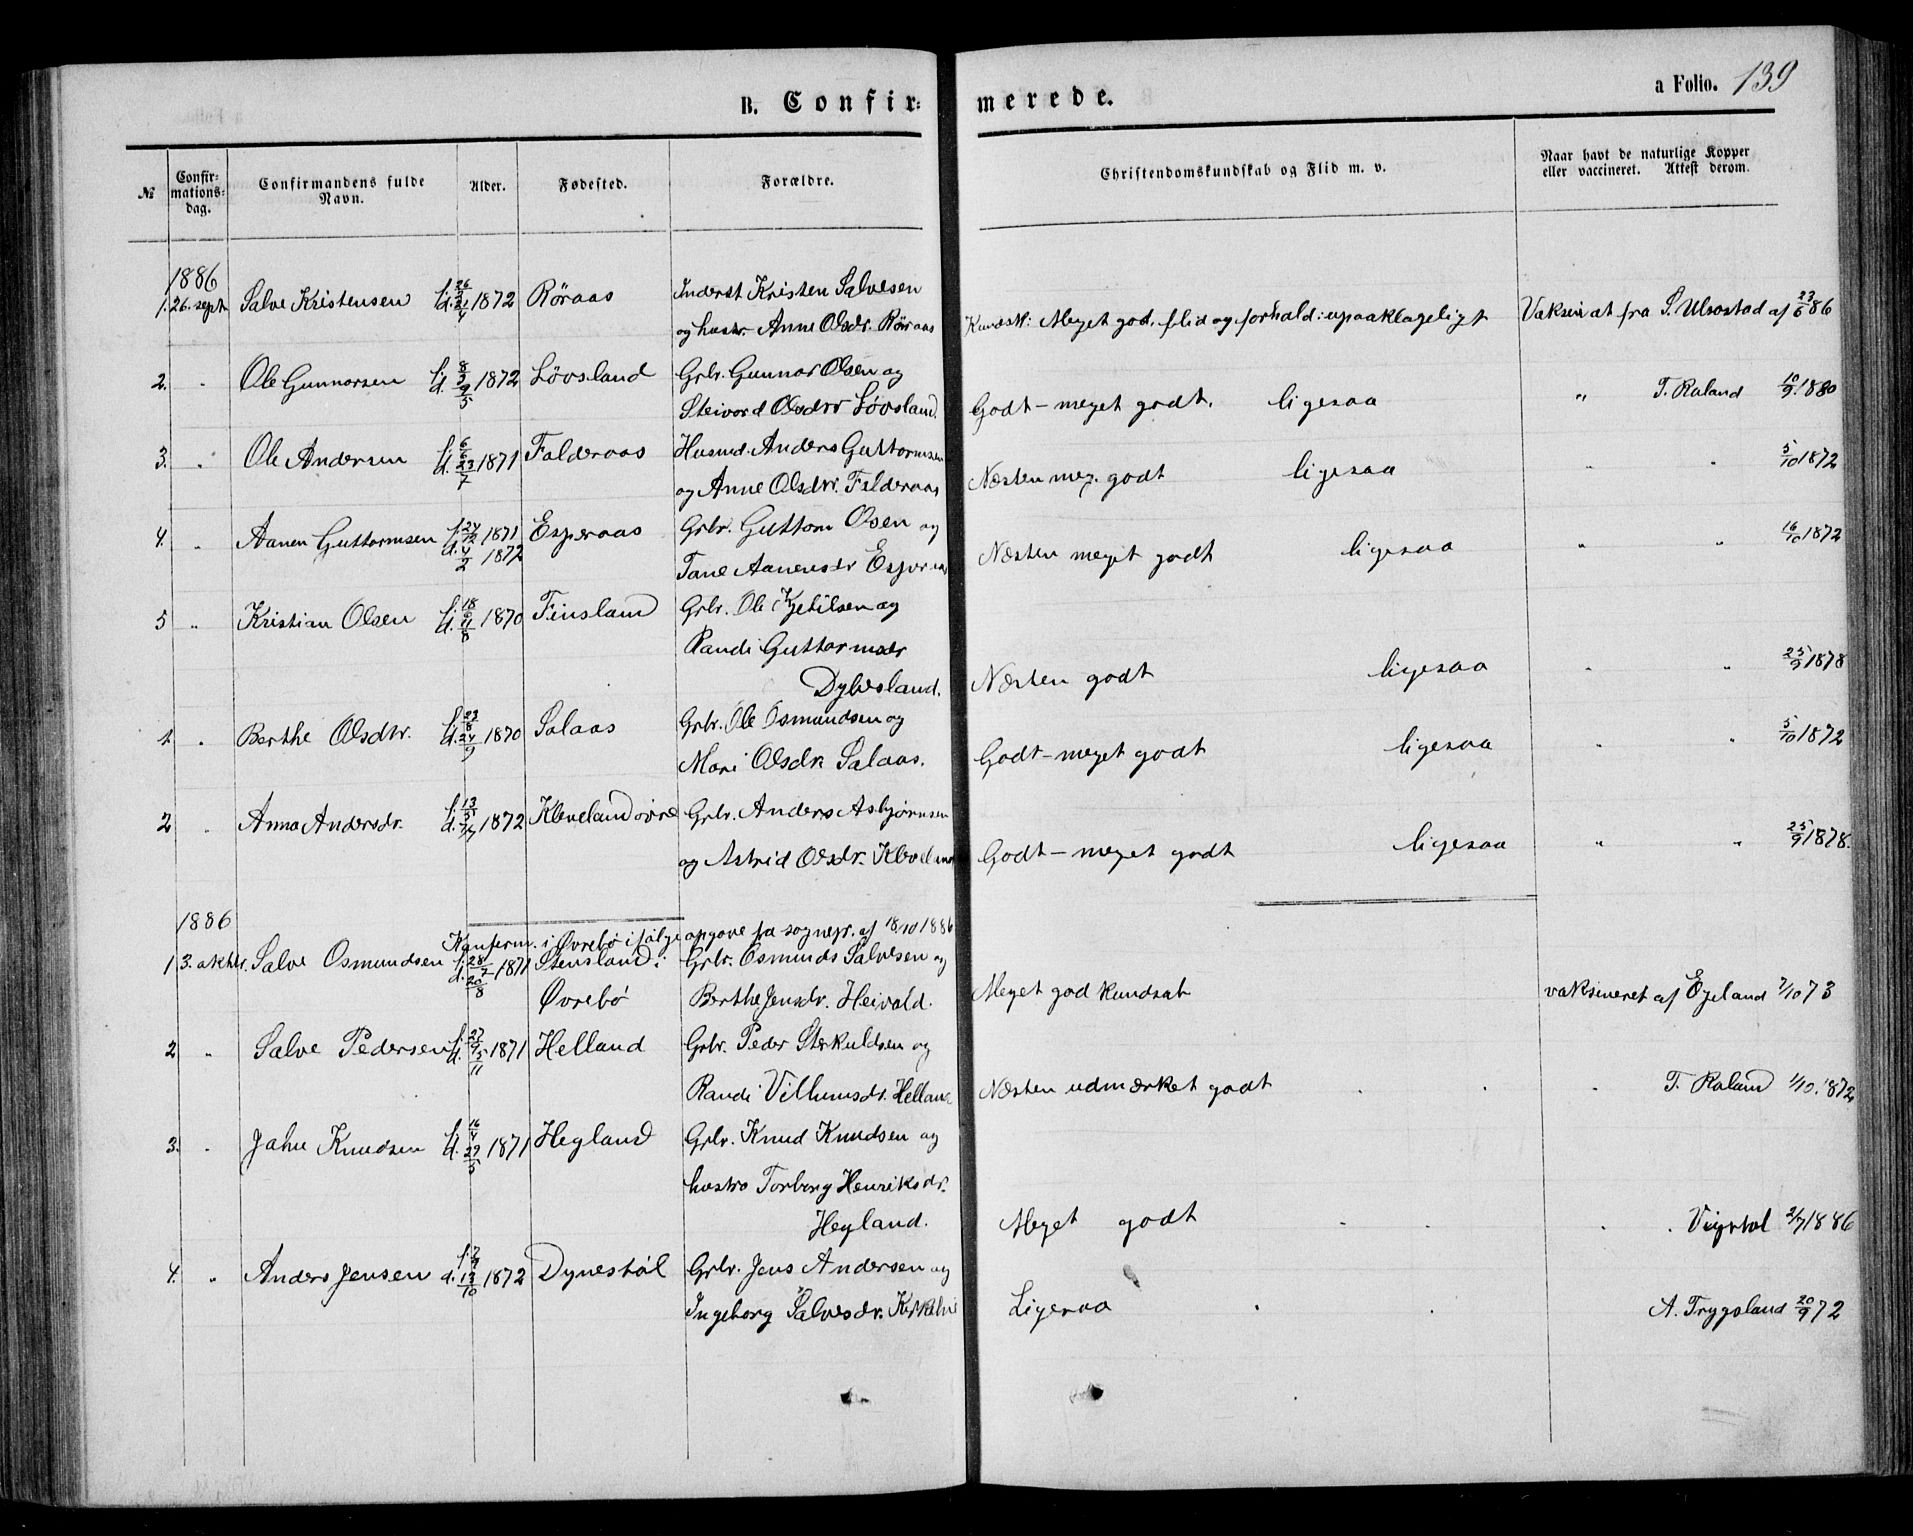 B. Confir-
merede.
a Folio. 139
№
Confir-
mations-
dag.
Confirmandens fulde
Navn.
Alder.
Fødested.
Forældre.
Christendomskundskab og Flid m. v.
Naar havt de naturlige Kopper
eller vaccineret. Attest derom.
1886
1. 26. sept. Salve Kristensen f. 26/3 d. 21/4 1872 Röraas Inderst Kristen Salvesen
og hustr. Anne Olsdr. Röraas Kundsk: Meget god, flid og forhald: upaaklageligt Vaksinat fra S. Ulvostad af 23/6 86
2. " Ole Gunnarsen f. 8/3 d. 9/5 1872 Lövsland Grbr. Gunnar Olsen og
Steivord Olsdtr Lövsland. Godt - meget godt. ligesaa " T. Raland 10/9 1880
3. " Ole Andersen f. 6/6 d. 23/7 1871 Falderaas Husmd. Anders Guttormsen
og Anne Olsdtr. Falderaas Næsten meg. godt ligesaa " " 5/10 1872
4. " Aanen Guttormsen f. 24/12 1871 Esperaas Grbr. Guttom Olsen og
d. 4/2 1872
Tane Aanensdr Esperaas Næsten meget godt ligesaa " " 16/10 1872
5 " Kristian Olsen f. 18/6 d. 11/8 1870 Finsland Grbr. Ole Kjetilsen og
Randi Guttormsdr
Dylvesland. Næsten godt ligesaa " " 25/9 1878
1. " Berthe Olsdtr. f. 23/8 d. 24/9 1870 Salaas Grbr. Ole Osmundsen og
Mari Olsdr. Salaas. Godt - meget godt ligesaa " " 5/10 1872
2 " Anna Andersdr. f. 13/5 d. 1872 Kleveland övre Grbr. Anders Asbjørnsen
og Astrid Olsdr. Kleveland Godt - meget godt ligesaa " " 25/9 1878.
1886
Konferm. i Øvrebö ifölge opgave fra sognepr. af 18/10 1886
1 3. oktbr. Salve Osmundsen f. 28/7 d. 20/8 1871 Stensland i Grbr. Osmund Salvesen og
Øvrebö Berthe Jensdr. Heivold. Meget god kundsab vaksineret af Egeland 7/10 73
2 " Salve Pedersen f. 27/9 d. 5/11 1871 Helland Grbr. Peder Sterkuldsen og
Randi Vilhumsdr. Helland Næsten udmærket godt " T. Raland 1/10 1872
3. " Jahn Knudsen f. 16/4 d. 29/5 1871 Hegland Grbr. Knud Knudsen og
hustro Torborg Henriksdr.
Hegland. Meget godt " " 2/7 1886
4. " Anders Jensen d. 13/10 1872 Dynestöl Grbr. Jens Andersen og
Ingeborg Salvesdr. Ligesaa A. Trygsland 20/9 72